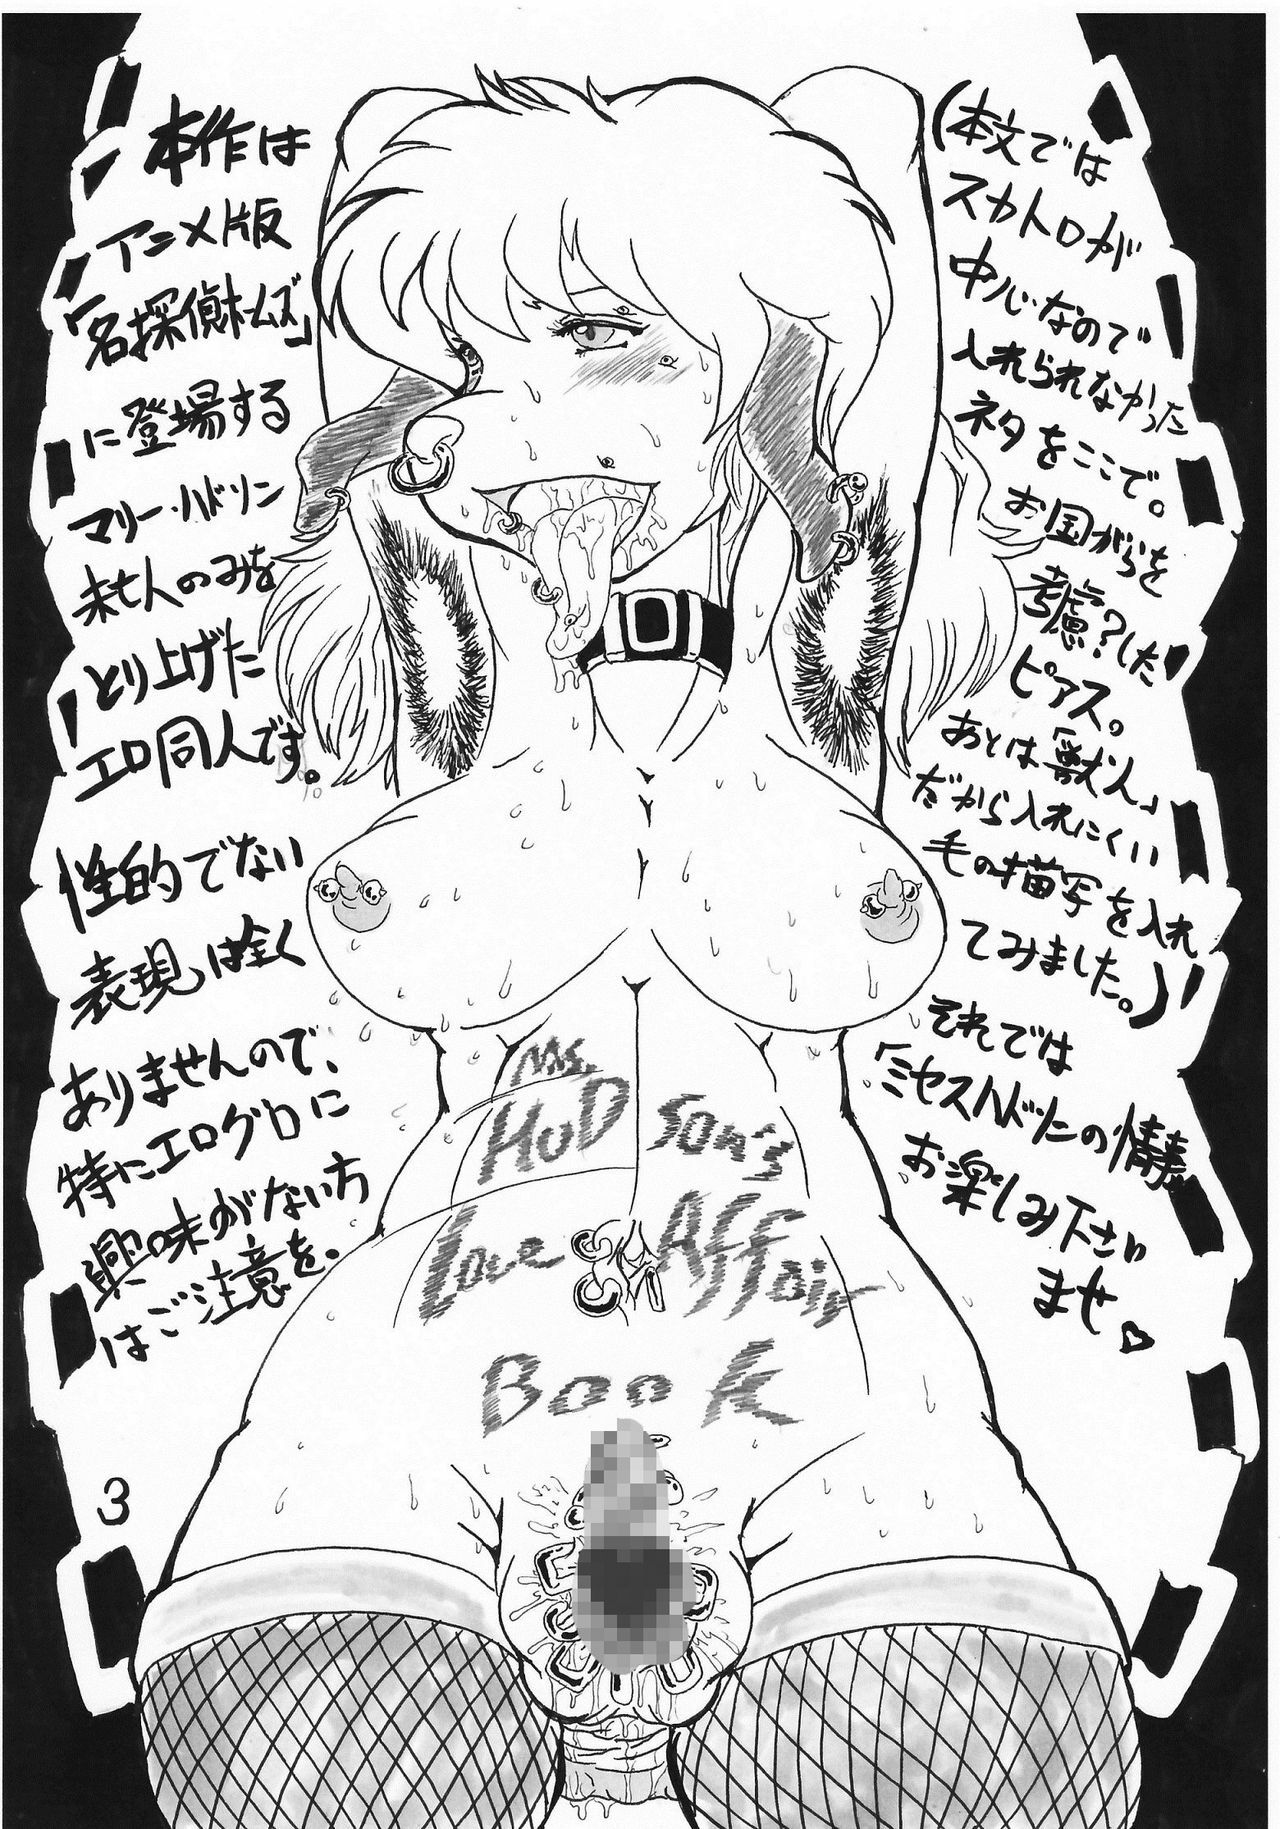 本作は
アニメ版
「名探偵ホームズ」
に登場する
マリー・ハドソン
未亡人のみを
とり上げた
エロ同人です。
性的でない
表現は全く
ありませんので、
特にエログロに
興味がない方
はご注意を。
(本文では
スカトロが
中心なので
入れられなかった
ネタをここで。
お国がらを
考慮?した
ピアス。
あとは「獣人」
だから入れにくい
毛の描写を入れ
てみました。)
それでは
「ミセスハドソンの情事」
お楽しみ下さい
ませ♡
Ms.
HuDson's
Love Affair
Book
3